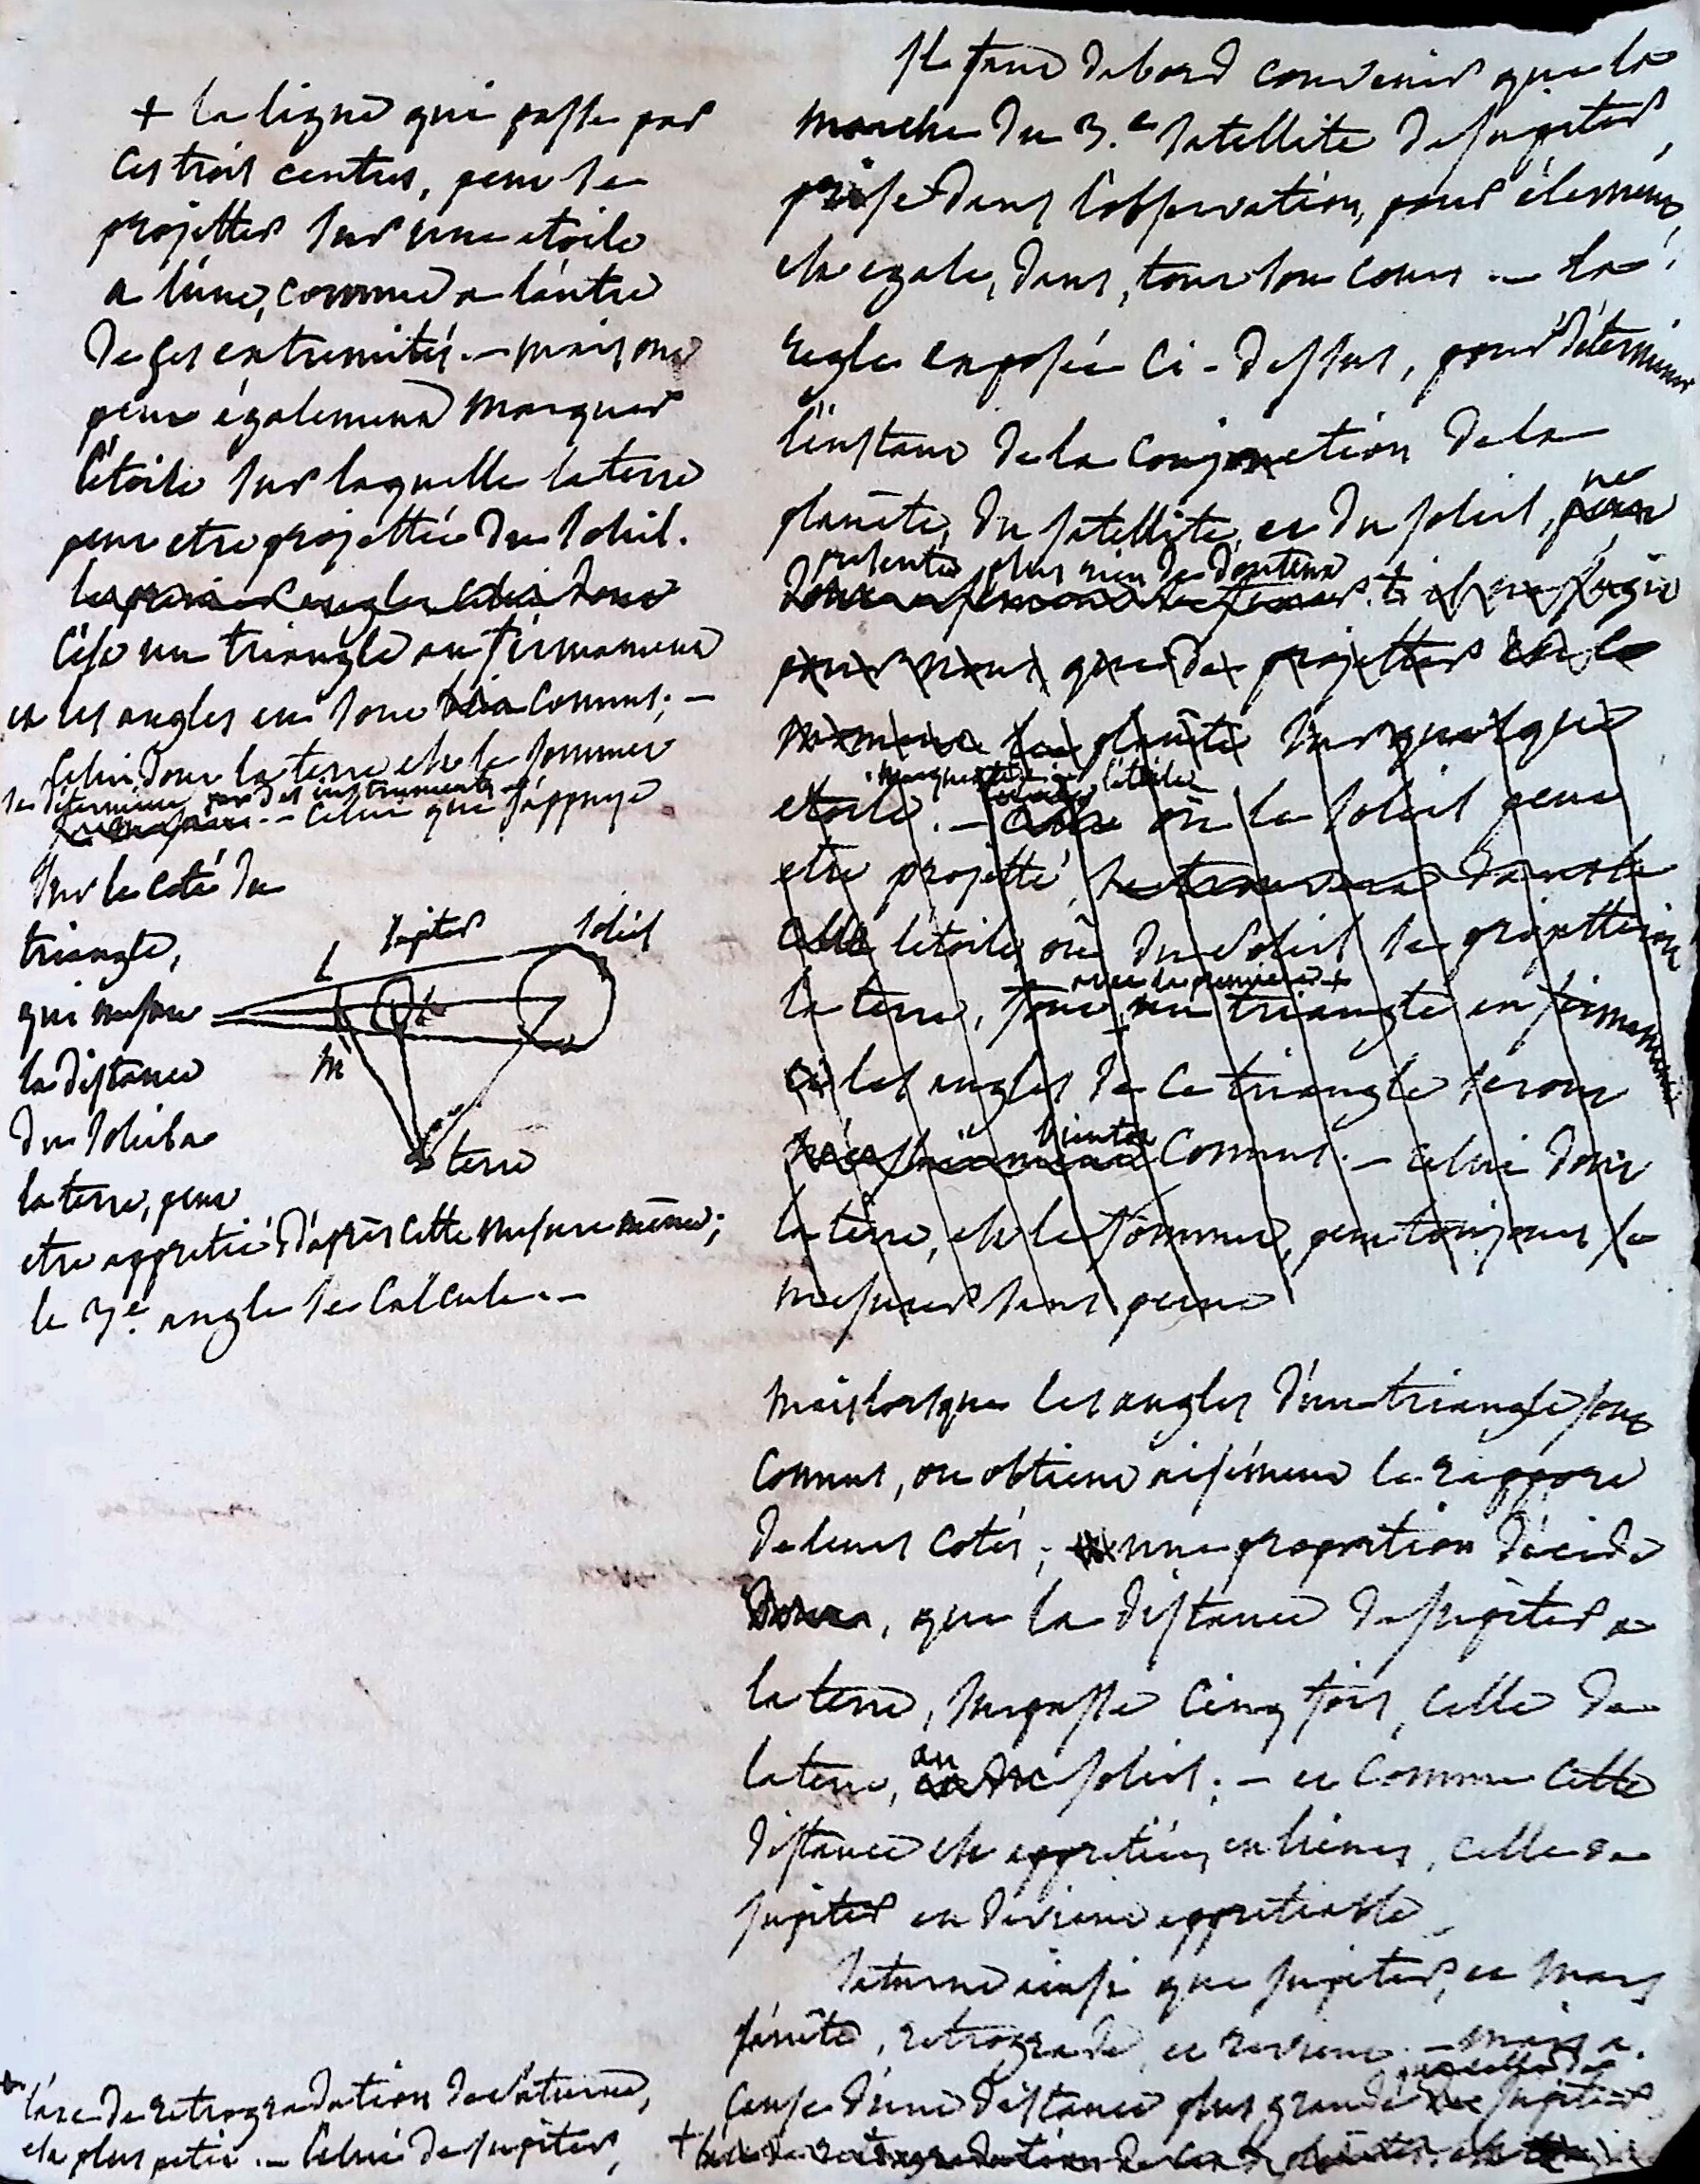 + la ligne qui passe par
ces trois centres, peut se
projetter sur une etoile
a l'une, comme a l'autre
de ses extremités. — mais on
peut également marquer
l'étoile sur laquelle la terre
peut etre projettée du soleil.
c'est un triangle au firmament
et les angles en sont connus; —
celui dont la terre est le sommet
se détermine par des instruments
— celui qui s'appuye
sur le coté du
triangle,
qui mesure
la distance
du soleil a
la terre, peut
etre appretié d'après cette mesure même;
le 3e. angle se calcule. —
L
Jupiter
soleil
M
terre
* l'arc de retrogradation de Saturne,
est plus petit. — celui de Jupiter,
Il faut dabord convenir que la
marche du 3.e satellite de Jupiter,
prise dans l'observation, pour élément,
est egale, dans, tout son cours — la
regle exposée ci-dessus, pour déterminer
l'instant de la conjonction de la
planète, du satellite, et du soleil, ne
presente plus rien de douteux
pour nous que de projetter
la planète sur quelque
etoile. — marquer l'étoile
où le soleil peut
etre projetté,
celle letoile, où du Soleil se projetteroit
avec la premiere +
la terre, sont un triangle en firmament
et les angles de ce triangle seront
bientot connus. — celui dont
la terre, est le sommet, peut toujours se
mesurer sans peine
mais lorsque les angles d'un triangle sont
connus, on obtient aisément le rapport
de leurs cotés; une proportion décide
, que la distance de Jupiter a
la terre, surpasse cinq fois, celle de
la terre, au soleil; — et comme cette
distance est appretiée en lieues, celle de
Jupiter en devient appretiable.
Saturne ainsi que Jupiter, et Mars
s'arrête, retrograde, et revient. — mais a
cause d'une distance plus grande que celle de Jupiter
+ de retrogradation de